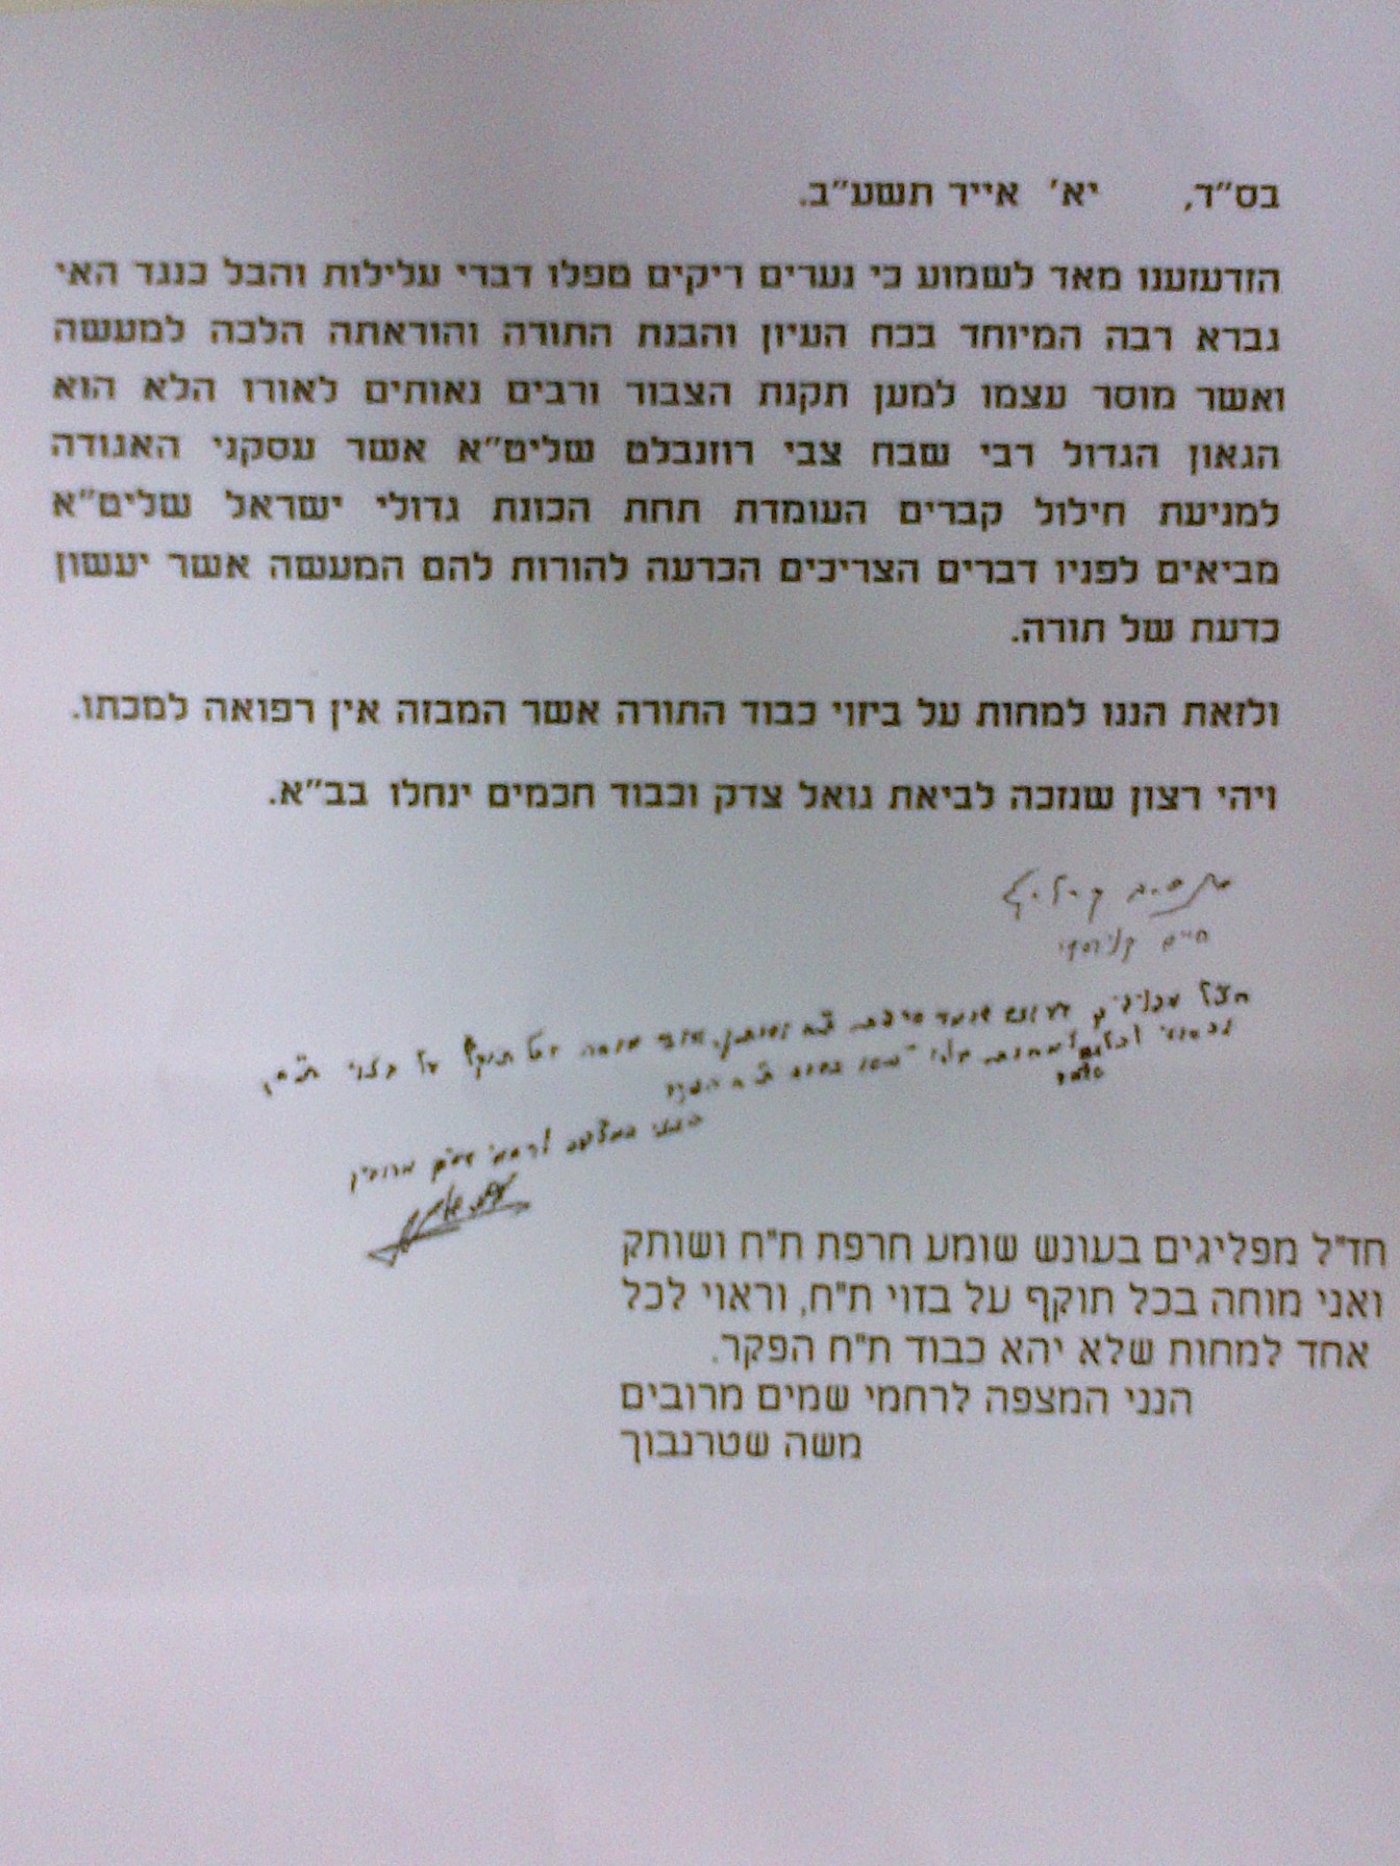 בס"ד, יא' אייר תשע"ב.
הזדעזענו מאד לשמוע כי נערים ריקים טפלו דברי עלילות והבל כנגד האי
גברא רבה המיוחד בכח העיון והבנת התורה והוראתה הלכה למעשה
ואשר מוסר עצמו למען תקנת הצבור ורבים נאותים לאורו הלא הוא
הגאון הגדול רבי שבח צבי רוזנבלט שליט"א אשר עסקני האגודה
למניעת חילול קברים העומדת תחת הכונת גדולי ישראל שליט"א
מביאים לפניו דברים הצריכים הכרעה להורות להם המעשה אשר יעשון
כדעת של תורה.
ולזאת הננו למחות על ביזוי כבוד התורה אשר המבזה אין רפואה למכתו.
ויהי רצון שנזכה לביאת גואל צדק וכבוד חכמים ינחלו בב"א.
חיים קניבסקי
הנני המצפה לרחמי שמים מרובים
חד"ל מפליגים בעונש שומע חרפת ת"ח ושותק
ואני מוחה בכל תוקף על בזוי ת"ח, וראוי לכל
אחד למחות שלא יהא כבוד ת"ח הפקר.
הנני המצפה לרחמי שמים מרובים
משה שטרנבוך